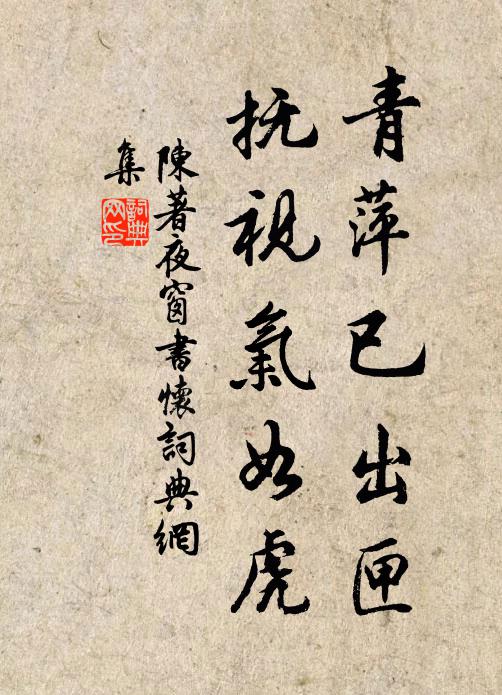 青萍已出匣
抚視氣如虎
陳著夜窗書懷詞典網
集
詞典網印